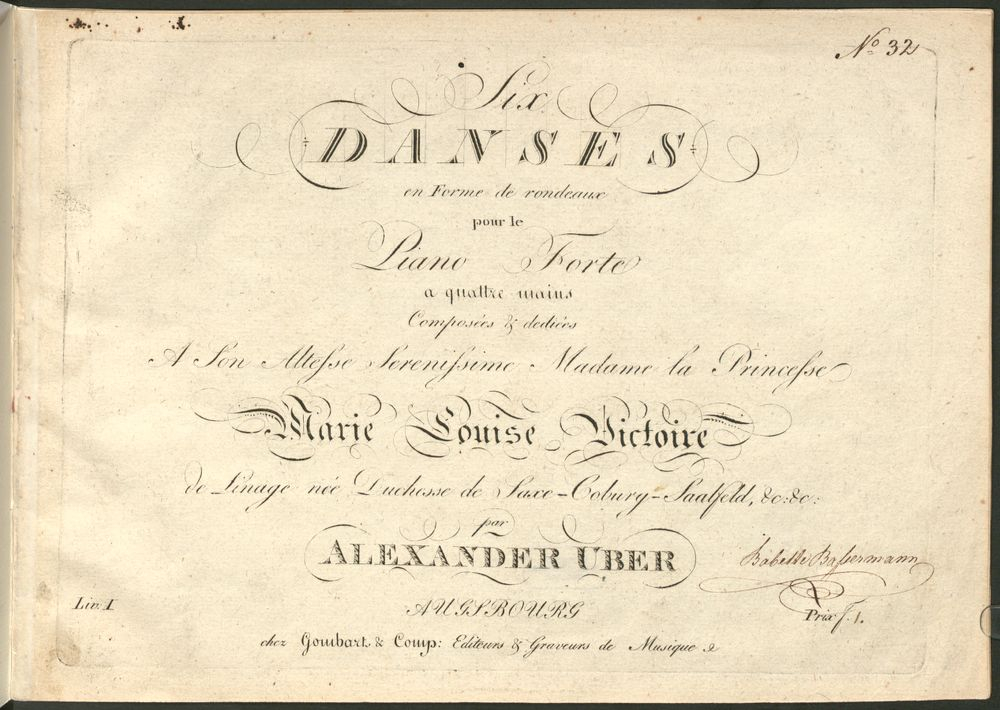 No 32
Six
DANSES
en Forme de rondeaux
pour le
Piano Forte
a quattre mains
Composées & dediées
A Son Altesse Serenissime Madame la Princesse
Marie Louise Victoire
de Linage née Duchesse de Saxe-Coburg-Saalfeld, &c:&c:
par
ALEXANDER UBER
Babette Bassermann
AUGSBOURG
Liv. I
Prix f. 1.
chez Gombart & Comp: Editeurs & Graveurs de Musique